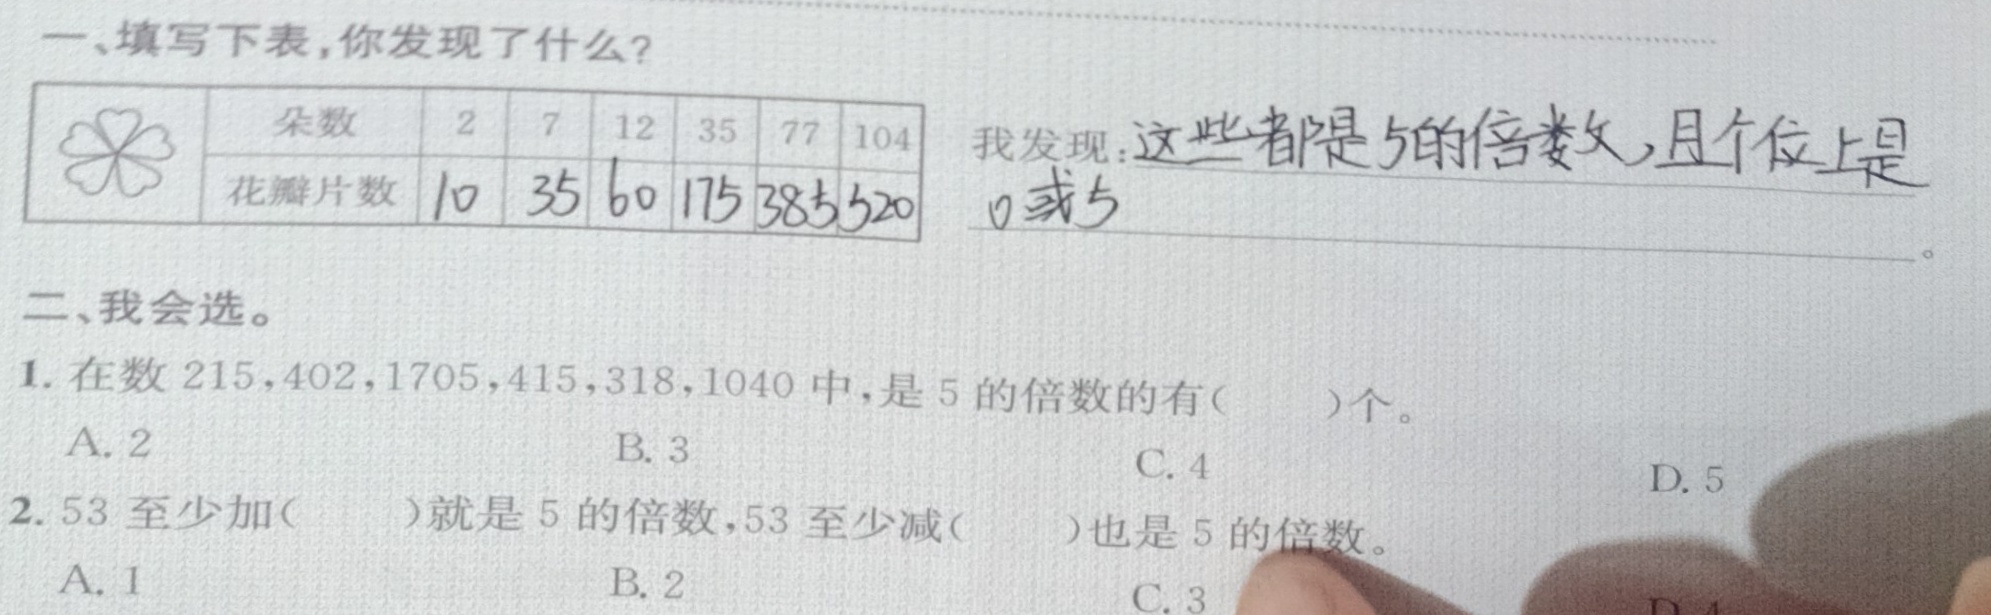 一、填写下表，你发现了什么？
朵数 2 7 12 35 77 104
花瓣片数 10 35 60 175 385 520
我发现：这些都是5的倍数，且个位上是
0或5。
二、我会选。
1. 在数 215，402，1705，415，318，1040 中，是 5 的倍数的有（ ）个。
A. 2 B. 3 C. 4 D. 5
2. 53 至少加（ ）就是 5 的倍数，53 至少减（ ）也是 5 的倍数。
A. 1 B. 2 C. 3